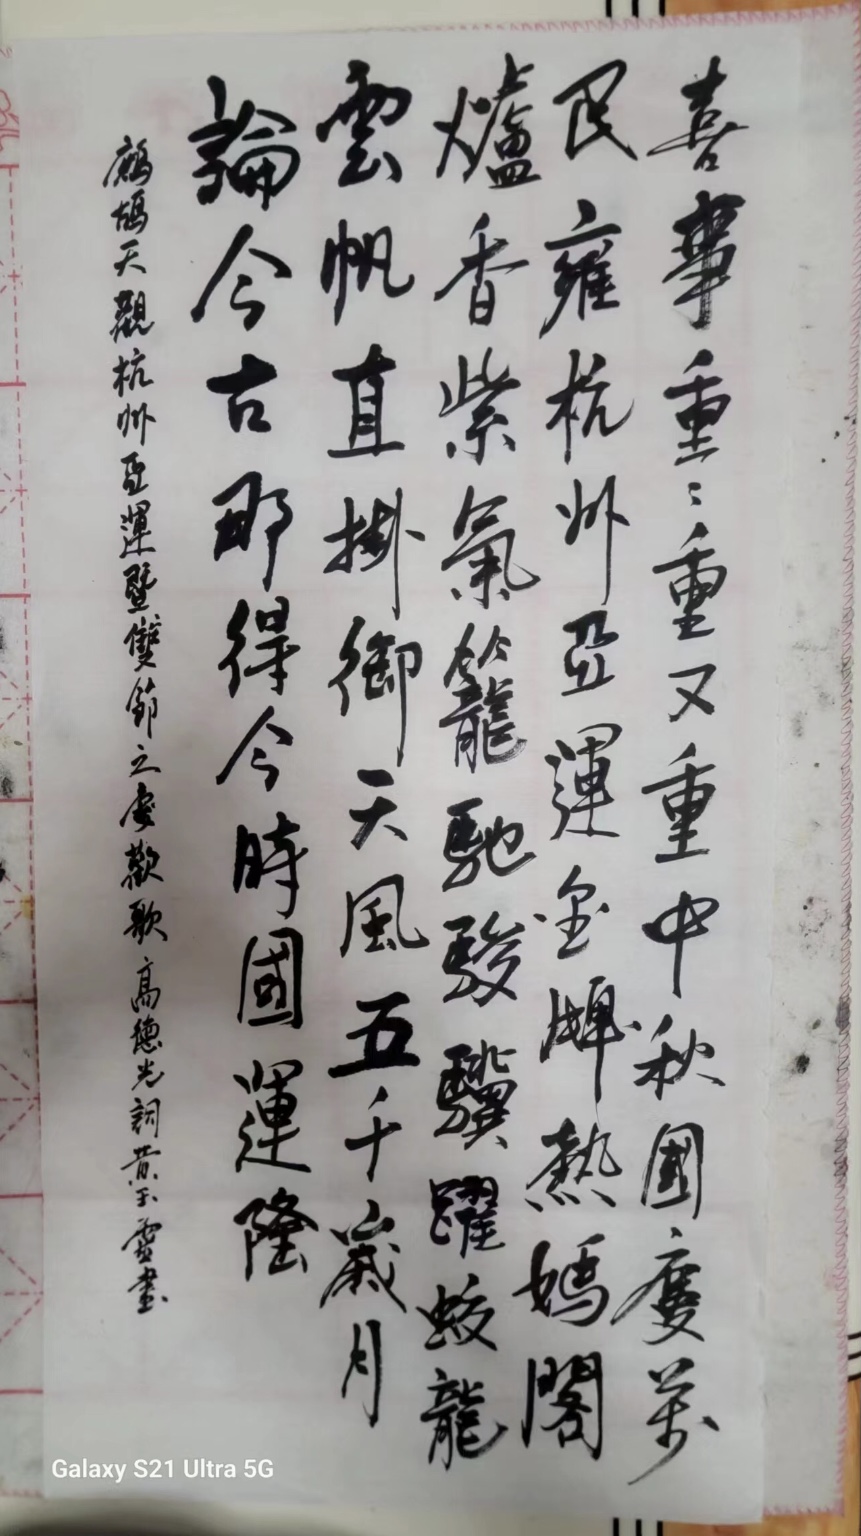 喜事重〻重又重中秋國慶萬
民雍杭州亞運金牌熱媽閣
爐香紫氣籠馳駿驥躍蛟龍
雲帆直掛御天風五千歲月
論今古那得今時國運隆
鷓鴣天觀杭州亞運暨雙節之慶歡歌高德光詞黃玉雲書
Galaxy S21 Ultra 5G